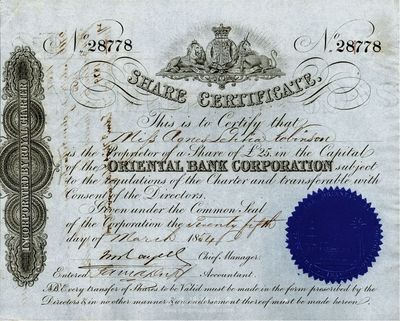 No. 28778
No. 28778
SHARE CERTIFICATE.
This is to Certify that
Miss Agnes Robinson
is the Proprietor of a Share of £25, in the Capital
of the ORIENTAL BANK CORPORATION subject
to the regulations of the Charter and transferable with
Consent of the Directors.
Given under the Common Seal
of the Corporation the seventy fifth
day of March 1864
Chief Manager.
Entered Accountant.
NB Every transfer of Shares to be Valid must be made in the form prescribed by the
Directors & in no other manner & an endorsement thereof must be made hereon
INCORPORATED BY ROYAL CHARTER